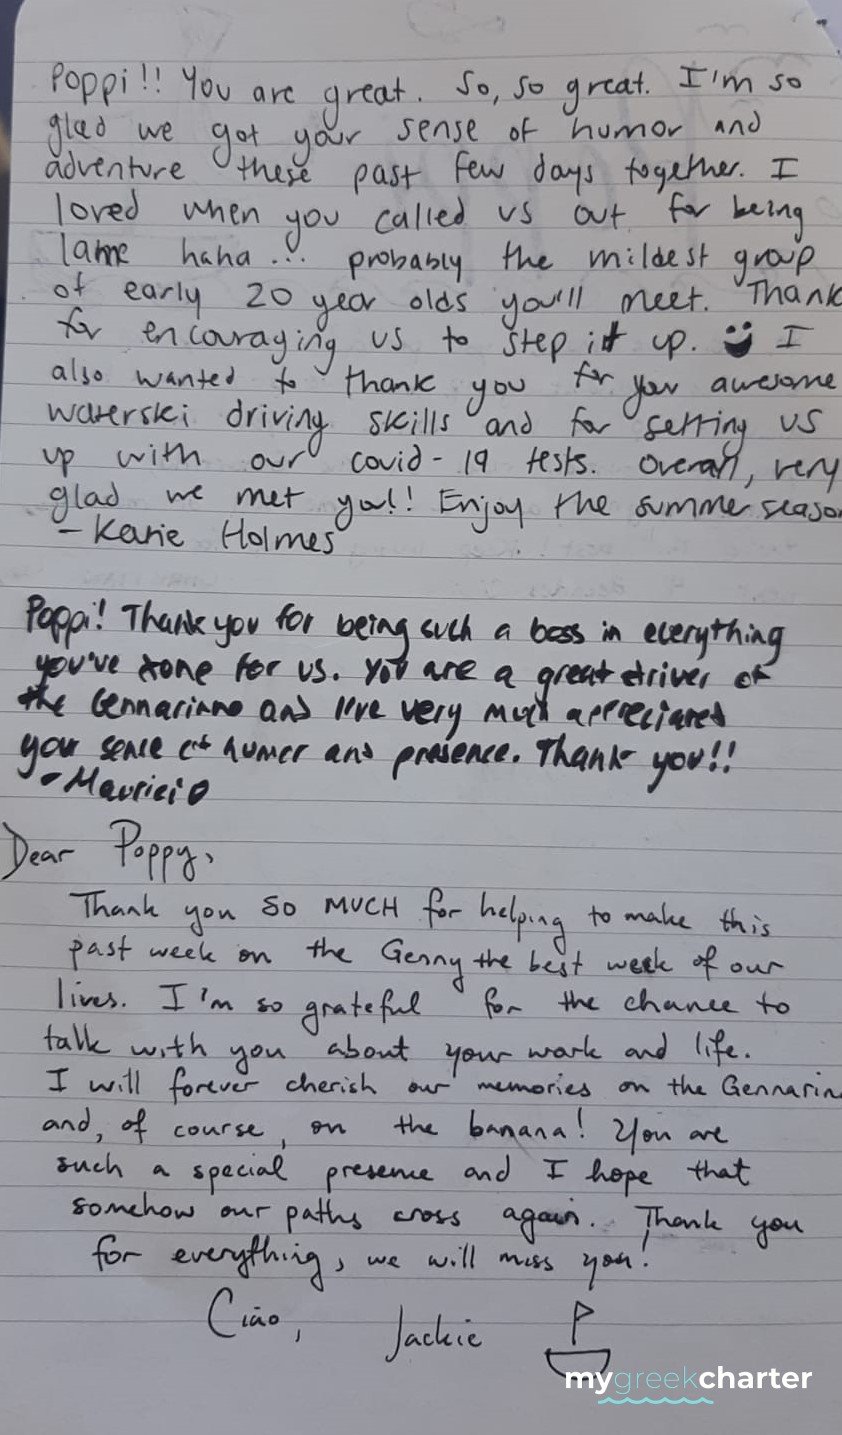 Poppi!! You are great. So, so great. I'm so
glad we got your sense of humor and
adventure these past few days together. I
loved when you called us out for being
lame haha... probably the mildest group
of early 20 year olds you'll meet. Thank
for encouraging us to step it up. I
also wanted to thank you for your awesome
waterski driving skills and for setting us
up with our covid-19 tests. Overall, very
glad we met you!! Enjoy the summer season
- Karie Holmes
Poppi! Thank you for being such a boss in everything
you've done for us. You are a great driver of
the Gennarino and I've very much appreciated
your sense of humor and presence. Thank you!!
- Mauricio
Dear Poppy,
Thank you SO MUCH for helping to make this
past week on the Genny the best week of our
lives. I'm so grateful for the chance to
talk with you about your work and life.
I will forever cherish our memories on the Gennarin
and, of course, on the banana! You are
such a special presence and I hope that
somehow our paths cross again. Thank you
for everything, we will miss you!
Ciao, Jackie
mygreekcharter